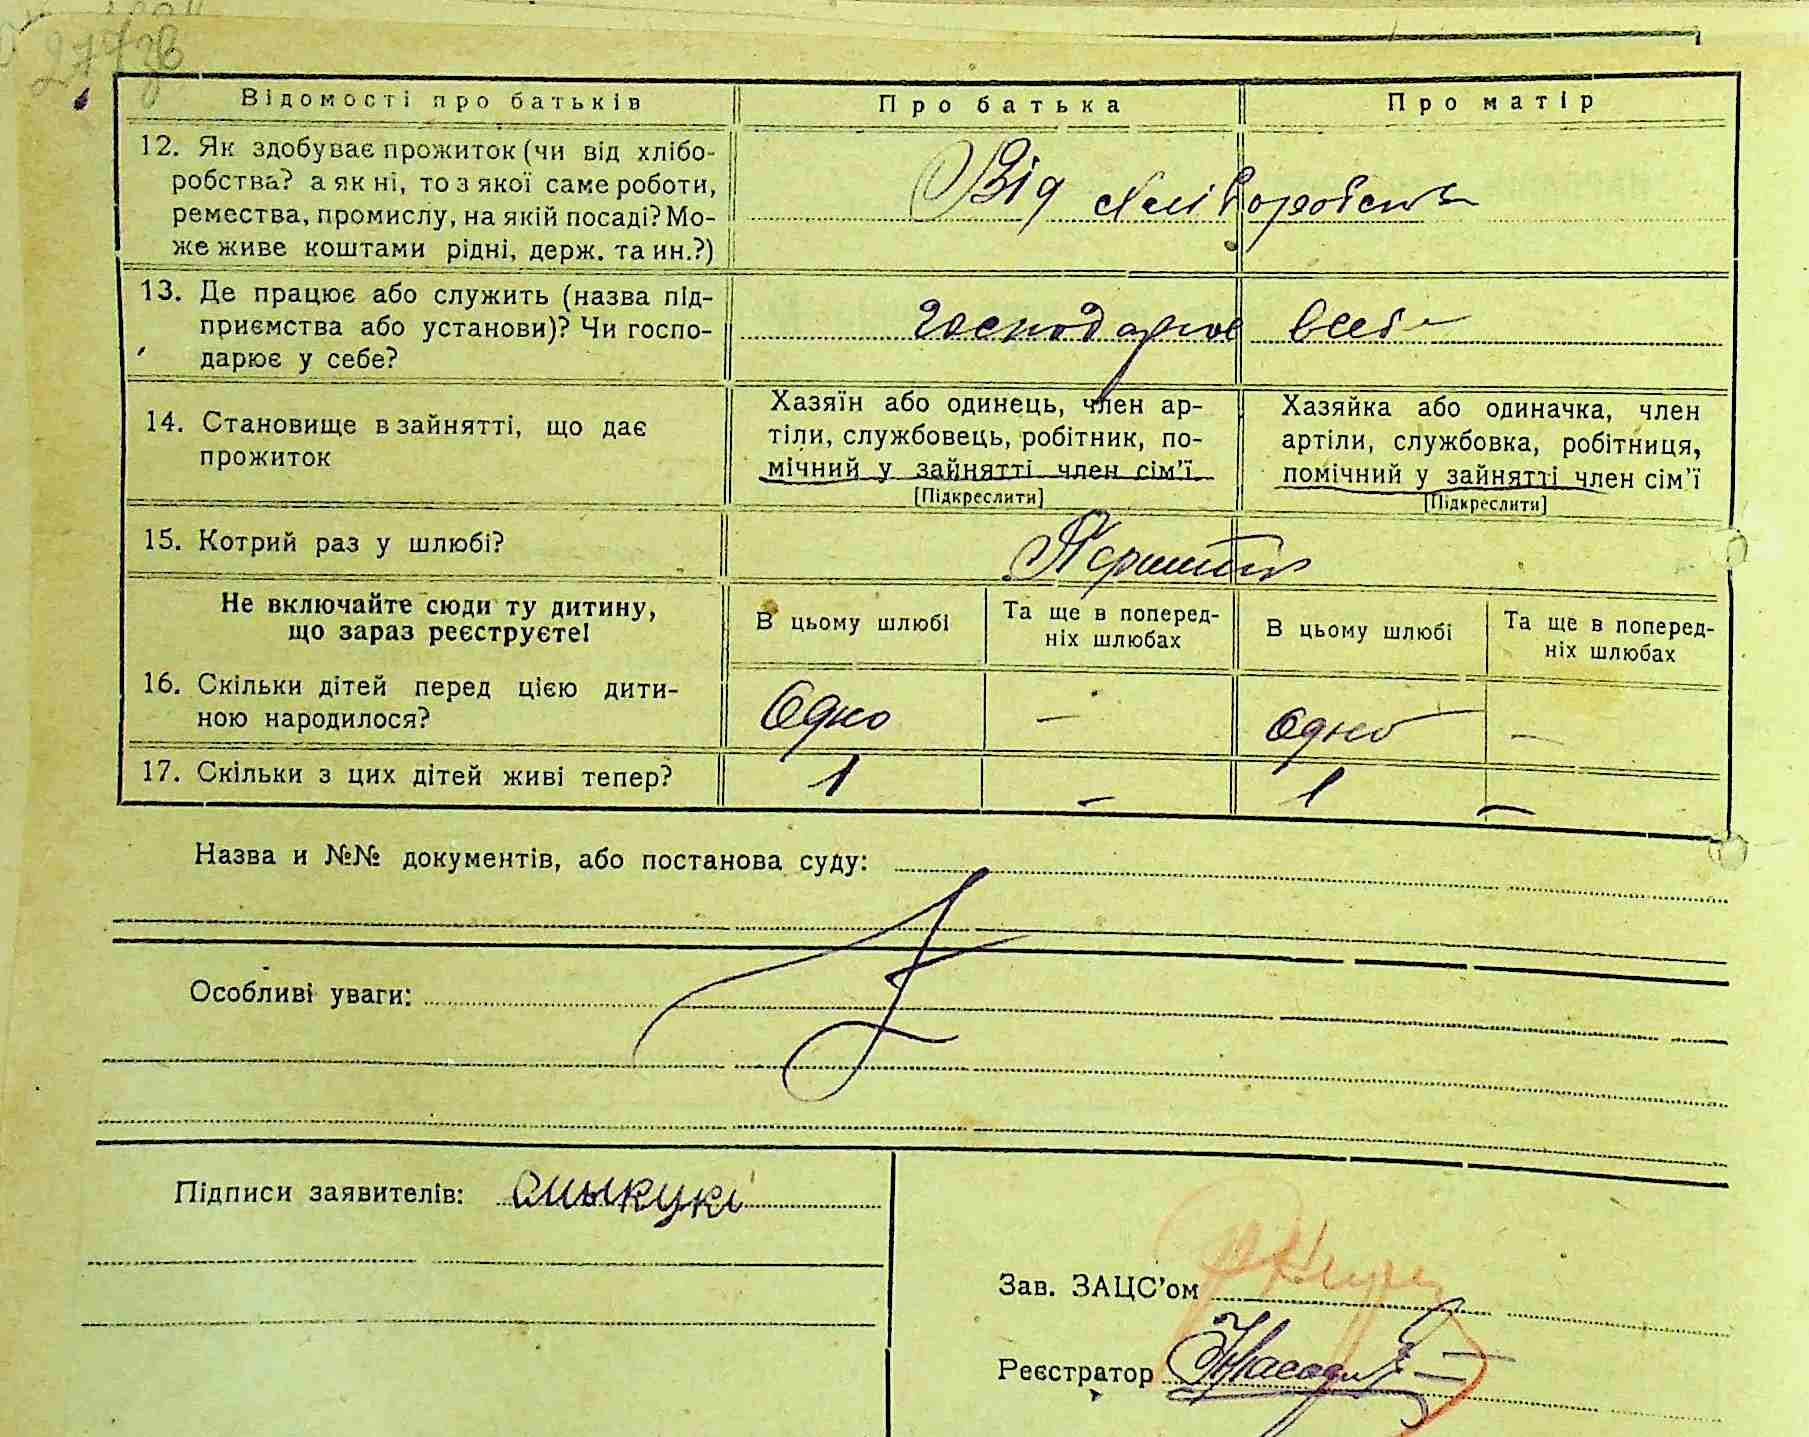 274зв
Відомості про батьків Про батька Про матір
12. Як здобуває прожиток (чи від хлібо-
робства? а як ні, то з якої саме роботи,
ремества, промислу, на якій посаді? Мо-
же живе коштами рідні, держ. та ин.?)
Від хліборобства
13. Де працює або служить (назва під-
приємства або установи)? Чи госпо-
дарює у себе?
господарює в себе
14. Становище в зайнятті, що дає
прожиток
Хазяїн або одинець, член ар-
тіли, службовець, робітник, по-
мічний у зайнятті член сім'ї
[Підкреслити]
Хазяйка або одиначка, член
артіли, службовка, робітниця,
помічний у зайнятті член сім'ї
[Підкреслити]
15. Котрий раз у шлюбі?
Не включайте сюди ту дитину,
що зараз реєструєте!
В цьому шлюбі
Та ще в поперед-
ніх шлюбах
В цьому шлюбі
Та ще в поперед-
ніх шлюбах
16. Скільки дітей перед цією дити-
ною народилося?
Одно — одно —
17. Скільки з цих дітей живі тепер? 1 — 1 —
Назва и №№ документів, або постанова суду:
Особливі уваги:
Підписи заявителів:
Зав. ЗАЦС'ом
Реєстратор